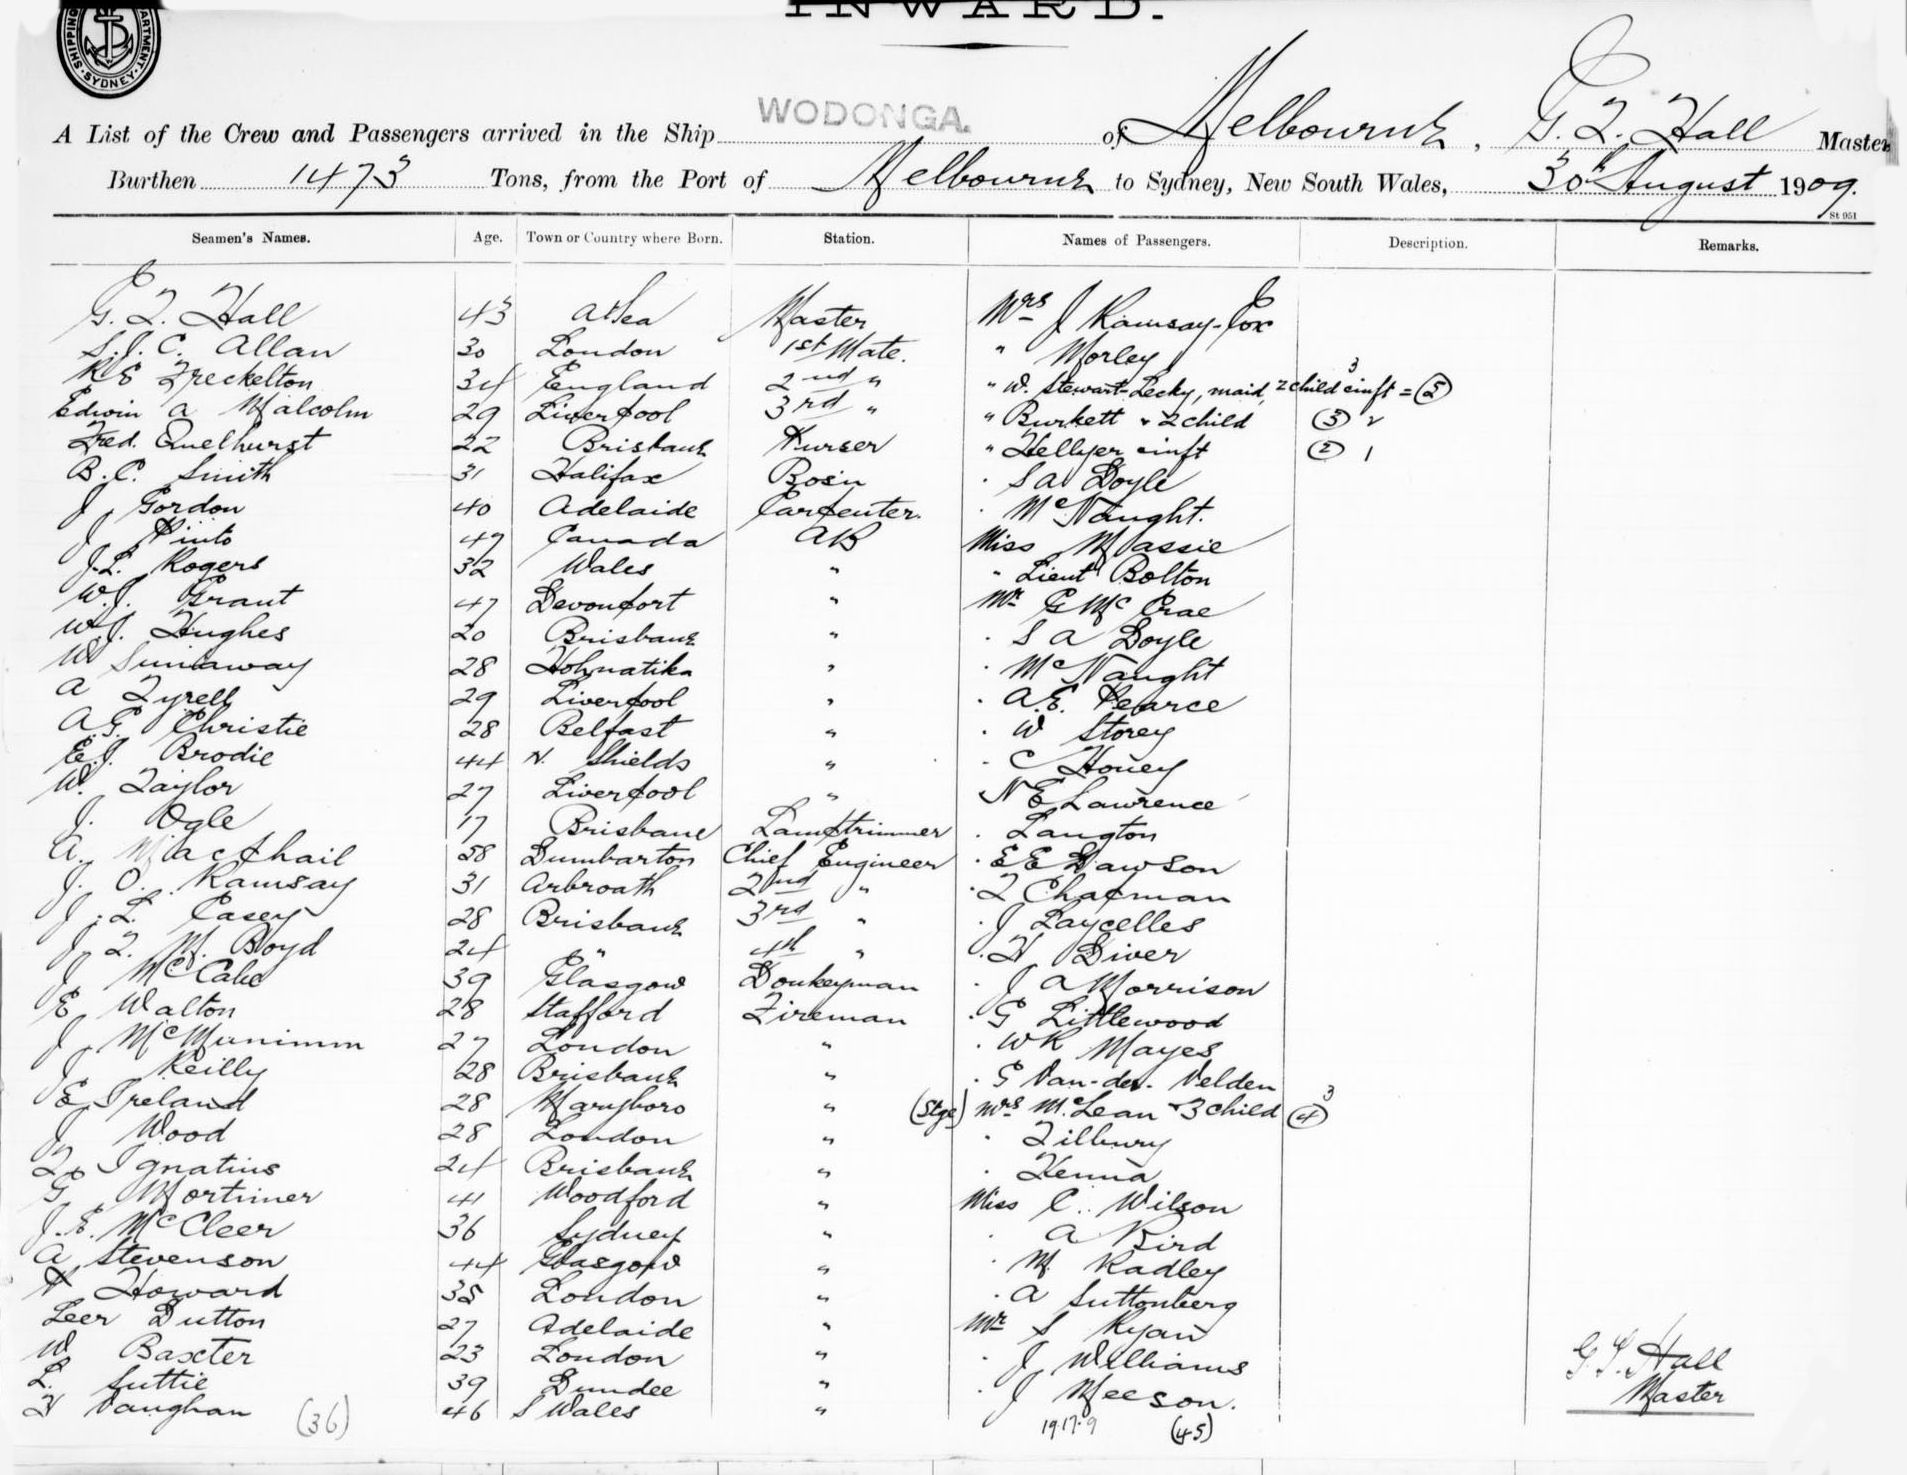 INWARD.
SHIPPING DEPARTMENT SYDNEY
WODONGA.
A List of the Crew and Passengers arrived in the Ship of Melbourne, G. T. Hall Master
Burthen 1473 Tons, from the Port of Melbourne to Sydney, New South Wales, 30th August 1909.
St 951
Seamen's Names. Age. Town or Country where Born. Station. Names of Passengers. Description. Remarks.
G. T. Hall 43 At Sea Master Mrs J Ramsay-Cox
S. J. C. Allan 30 London 1st Mate. " Morley
R E Freckelton 34 England 2nd " " W. Stewart-Lecky, maid, 2 child & inft = (5) 3
Edwin A Malcolm 29 Liverpool 3rd " " Burkett & 2 child (3) 2
Fred. Quelhurst 22 Brisbane Purser " Hellyer & inft (2) 1
B. C. Smith 31 Halifax Bosn " S A Doyle
J Gordon 40 Adelaide Carpenter. " McNaught.
J Pinto 47 Canada AB Miss Massie
J. L. Rogers 32 Wales " " Lieut Bolton
W. J. Grant 47 Devonport " Mr G McCrae
W. J. Hughes 20 Brisbane " " S A Doyle
W 28 Hohnatika " " McNaught
A Tyrell 29 Liverpool " " A. E. Pearce
A. G. Christie 28 Belfast " " W Storey
E. J. Brodie 44 N. Shields " " C Honey
W. Taylor 27 Liverpool " N E Lawrence
J. Ogle 17 Brisbane Lamptrimmer " Langton
A. Macphail 58 Dumbarton Chief Engineer " E E Dawson
J. O. Ramsay 31 Arbroath 2nd " " T Chapman
J. L. Casey 28 Brisbane 3rd " " J Laycelles
J. T. M. Boyd 24 " 4th " " H Diver
J McCabe 39 Glasgow Donkeyman " J A Morrison
E Walton 28 Stafford Fireman " G Littlewood
J McMunimm 27 London " " W R Mayes
J Reilly 28 Brisbane " " G Van-der-Velden
E Ireland 28 Maryboro " (Stge) Mrs McLean & 3 child (4) 3
J Wood 28 London " " Tilbury
T. Ignatius 24 Brisbane " " Kenna
G Mortimer 41 Woodford " Miss C. Wilson
J. E. McCleer 36 Sydney " " A Bird
A Stevenson 44 Glasgow " " M Radley
P Howard 35 London " " A Suttonberg
Leer Dutton 27 Adelaide " Mr S Ryan
W Baxter 23 London " " J Williams
L. Suttie 39 Dundee " " J Meeson.
H Vaughan 46 S Wales "
(36) 19.17.9 (45)
G T. Hall
Master